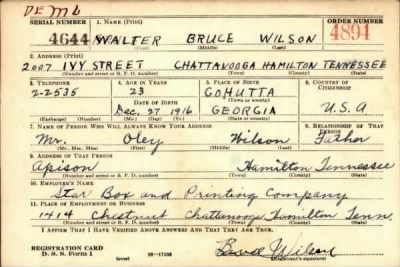 DEML
SERIAL NUMBER 1. Name (Print) ORDER NUMBER
4644 WALTER BRUCE WILSON 4894
(First) (Middle) (Last)
2. Address (Print)
2007 IVY STREET CHATTANOOGA HAMILTON TENNESSEE
(Number and street or R. F. D. number) (Town) (County) (State)
3. Telephone 4. Age in Years 5. Place of Birth 6. Country of Citizenship
2-2535 23 COHUTTA
Date of Birth
Dec. 27 1916 GEORGIA U.S.A
(Mo.) (Day) (Yr.) (State or country)
7. Name of Person Who Will Always Know Your Address 8. Relationship of That Person
Mr. Oley Wilson Father
(Mr., Mrs., Miss) (First) (Middle) (Last)
9. Address of That Person
Apison Hamilton Tennessee
(Number and street or R. F. D. number) (Town) (County) (State)
10. Employer's Name
Star Box and Printing Company
11. Place of Employment or Business
1414 Chestnut Chattanooga Hamilton Tenn
(Number and street or R. F. D. number) (Town) (County) (State)
I Affirm That I Have Verified Above Answers and That They Are True.
REGISTRATION CARD
D. S. S. Form 1 (over) 16-17105
Wilson
(Registrant's signature)